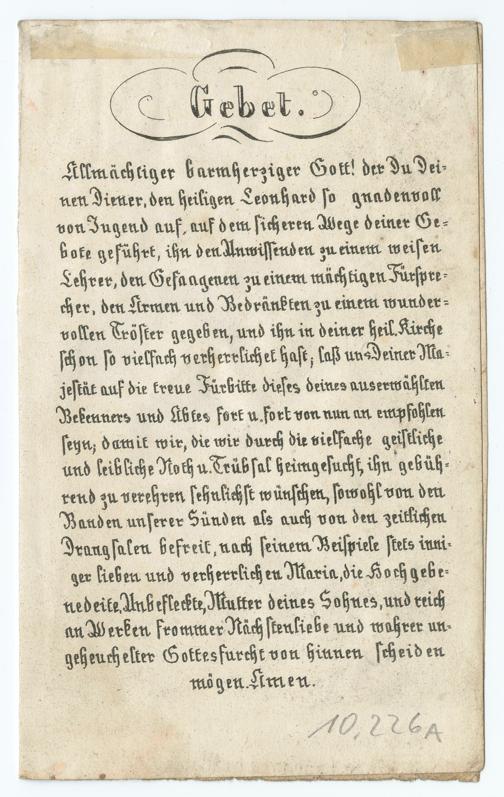 Gebet.
Allmächtiger barmherziger Gott! der Du Dei-
nen Diener, den heiligen Leonhard so gnadenvoll
von Jugend auf, auf dem sicheren Wege deiner Ge-
bote geführt, ihn den Unwissenden zu einem weisen
Lehrer, den Gefangenen zu einem mächtigen Fürspre-
cher, den Armen und Bedränkten zu einem wunder-
vollen Tröster gegeben, und ihn in deiner heil. Kirche
schon so vielfach verherrlichet hast; laß uns Deiner Ma-
jestät auf die treue Fürbitte dieses deines auserwählten
Bekenners und Abtes fort u. fort von nun an empfohlen
seyn; damit wir, die wir durch die vielfache geistliche
und leibliche Noth u. Trübsal heimgesucht, ihn gebüh-
rend zu verehren sehnlichst wünschen, sowohl von den
Banden unserer Sünden als auch von den zeitlichen
Drangsalen befreit, nach seinem Beispiele stets inni-
ger lieben und verherrlichen Maria, die Hochgebe-
nedeite, Unbefleckte, Mutter deines Sohnes, und reich
an Werken frommer Nächstenliebe und wahrer un-
geheuchelter Gottesfurcht von hinnen scheiden
mögen. Amen.
10,226A